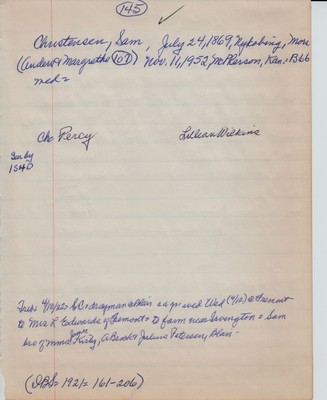 145
Christensen, Sam, July 24, 1869, Nykobing, Mors
(Anders & Margrethe 101) Nov. 11, 1952, McPherson, Kan: B66
med=
Ch: Percy Lillian Wilkins
Sur by
1S4D
Trib: 4/10/22 S.C. drayman @ Blair a apr wed Wed (4/12) @ Fremont
to Mrs L. Edwards of Fremont = to farm near Irvington = Sam
bro of Mmes Kirby, A. Brock & Julius Petersen, Blair -
(DBS= 1921= 161-206)